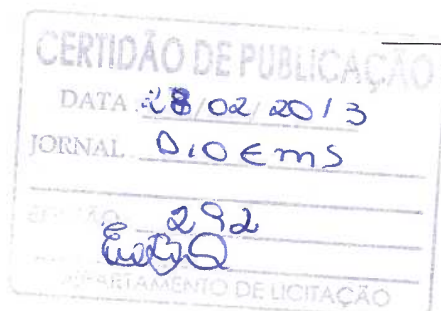 CERTIDÃO DE PUBLICAÇÃO
DATA 28/02/2013
JORNAL DIOEMS
EDIÇÃO 292
DEPARTAMENTO DE LICITAÇÃO